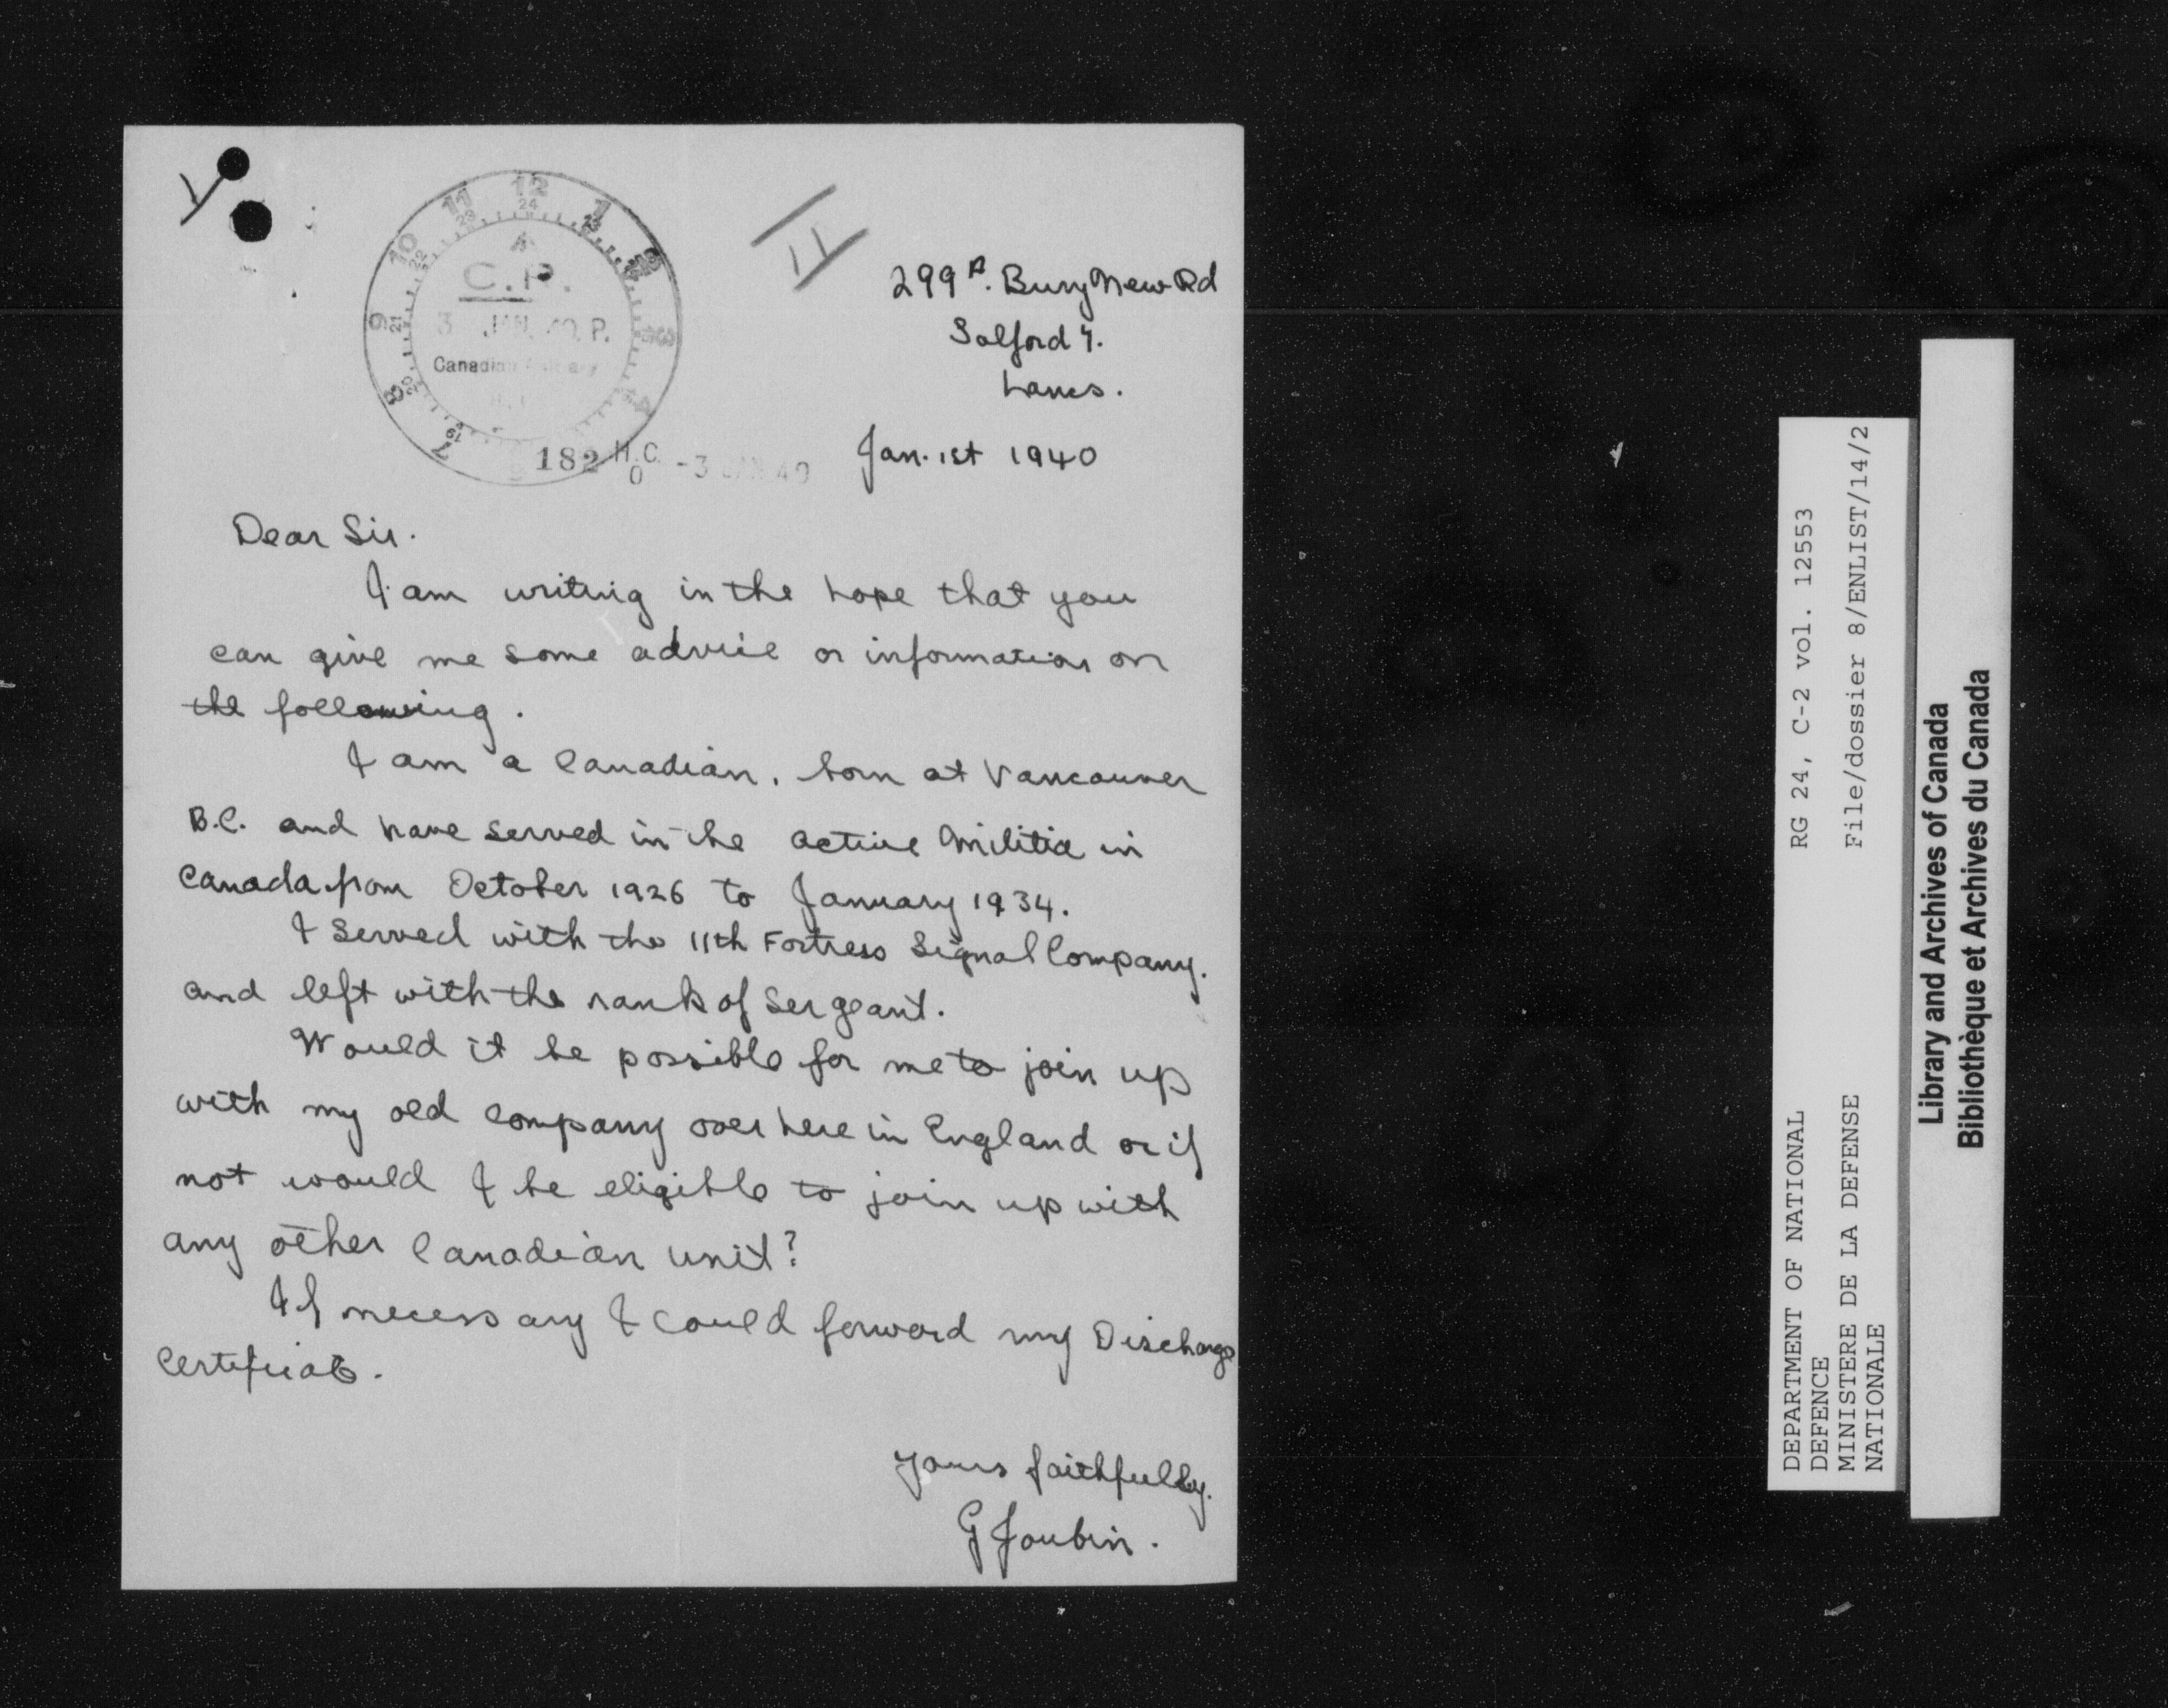 11
12
24
1
13
11
23
10
22
9
21
8
20
7
19
C.P.
3 JAN. 40. P.
Canadian
182 H.C.
0
-3 JAN 40
299 A. Bury New Rd
Salford 7.
Lancs.
Jan. 1st 1940
Dear Sir.
I am writing in the hope that you
can give me some advice or information on
the following.
I am a Canadian, born at Vancouver
B.C. and have served in the active Militia in
Canada from October 1926 to January 1934.
I served with the 11th Fortress Signal Company.
and left with the rank of Sergeant.
Would it be possible for me to join up
with my old company over here in England or if
not would I be eligible to join up with
any other Canadian unit?
If necessary I could forward my Discharge
Certificate.
Yours faithfully.
G Joubin.
DEPARTMENT OF NATIONAL
DEFENCE
MINISTERE DE LA DEFENSE
NATIONALE
RG 24, C-2 vol. 12553
File/dossier 8/ENLIST/14/2
Library and Archives of Canada
Bibliothèque et Archives du Canada